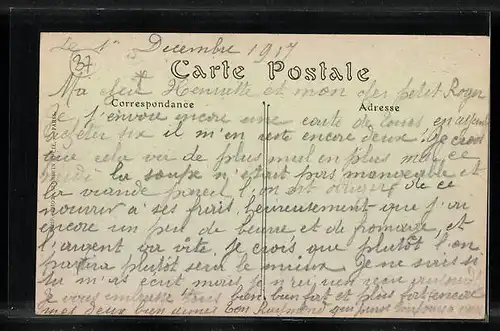 Le 1er Decembre 1917
37
Carte Postale
Ma chere Henriette et mon cher petit Roger
Correspondance
Adresse
Je t'envoie encore une carte de Tours en
acheter six il m'en reste encore deux. Je crois
que cela va de plus mal en plus mal ce
midi la soupe n'était pas mangeable et
la viande pareil l'on est de ce
nourrir à ses frais, heureusement que j'ai
encore un peu de beurre et de fromage et
l'argent va vite. Je crois que plutôt l'on
partira plutôt sera le mieux. Je ne sais si
tu m'as ecrit mais je n'ai rien
Je vous embrasse tous bien bien fort et plus fort encore
mes deux bien aimés ton Raymond qui pense toujours